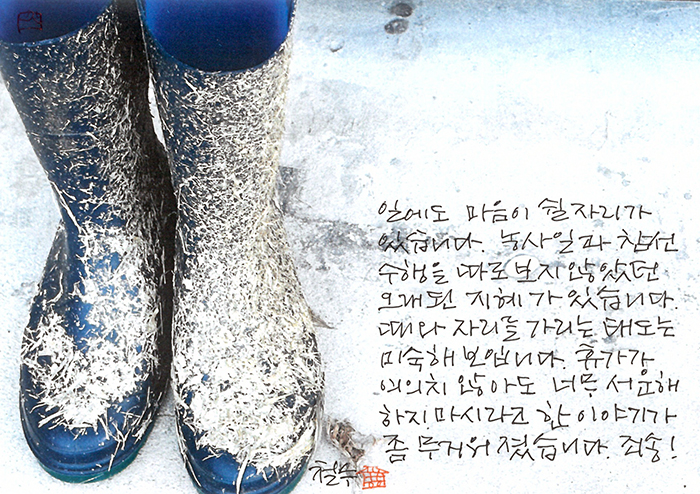 일에도 마음이 쉴 자리가
있습니다. 농사일과 참선
수행을 따로 보지 않았던
오래된 지혜가 있습니다.
때와 자리를 가리는 태도는
미숙해 보입니다. 휴가가
여의치 않아도 너무 서운해
하지 마시라고 한 이야기가
좀 무거워 졌습니다. 죄송!
철수